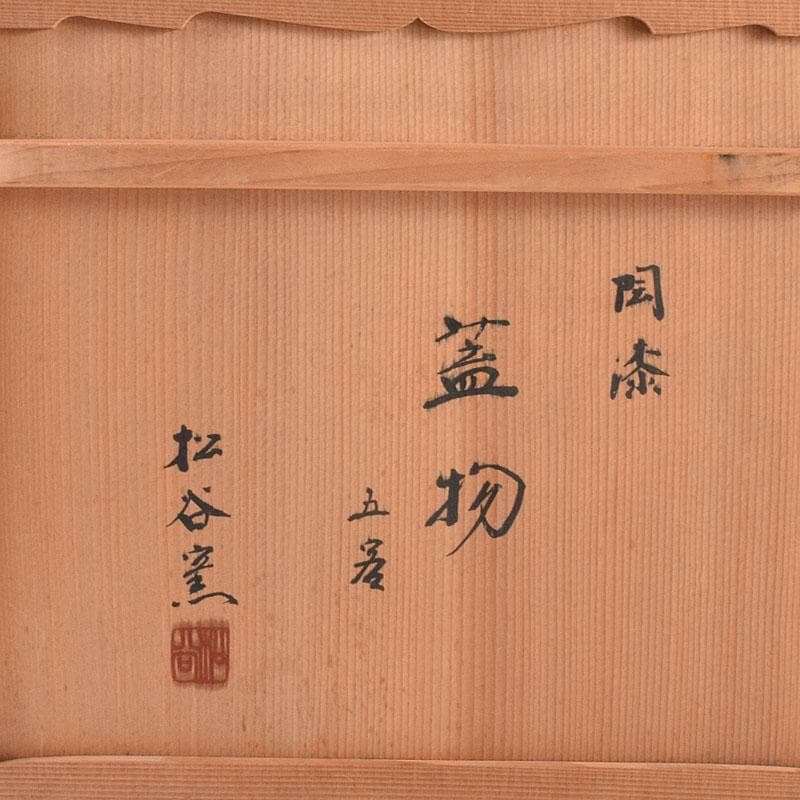 陶漆
蓋物
五客
松谷窯
松谷